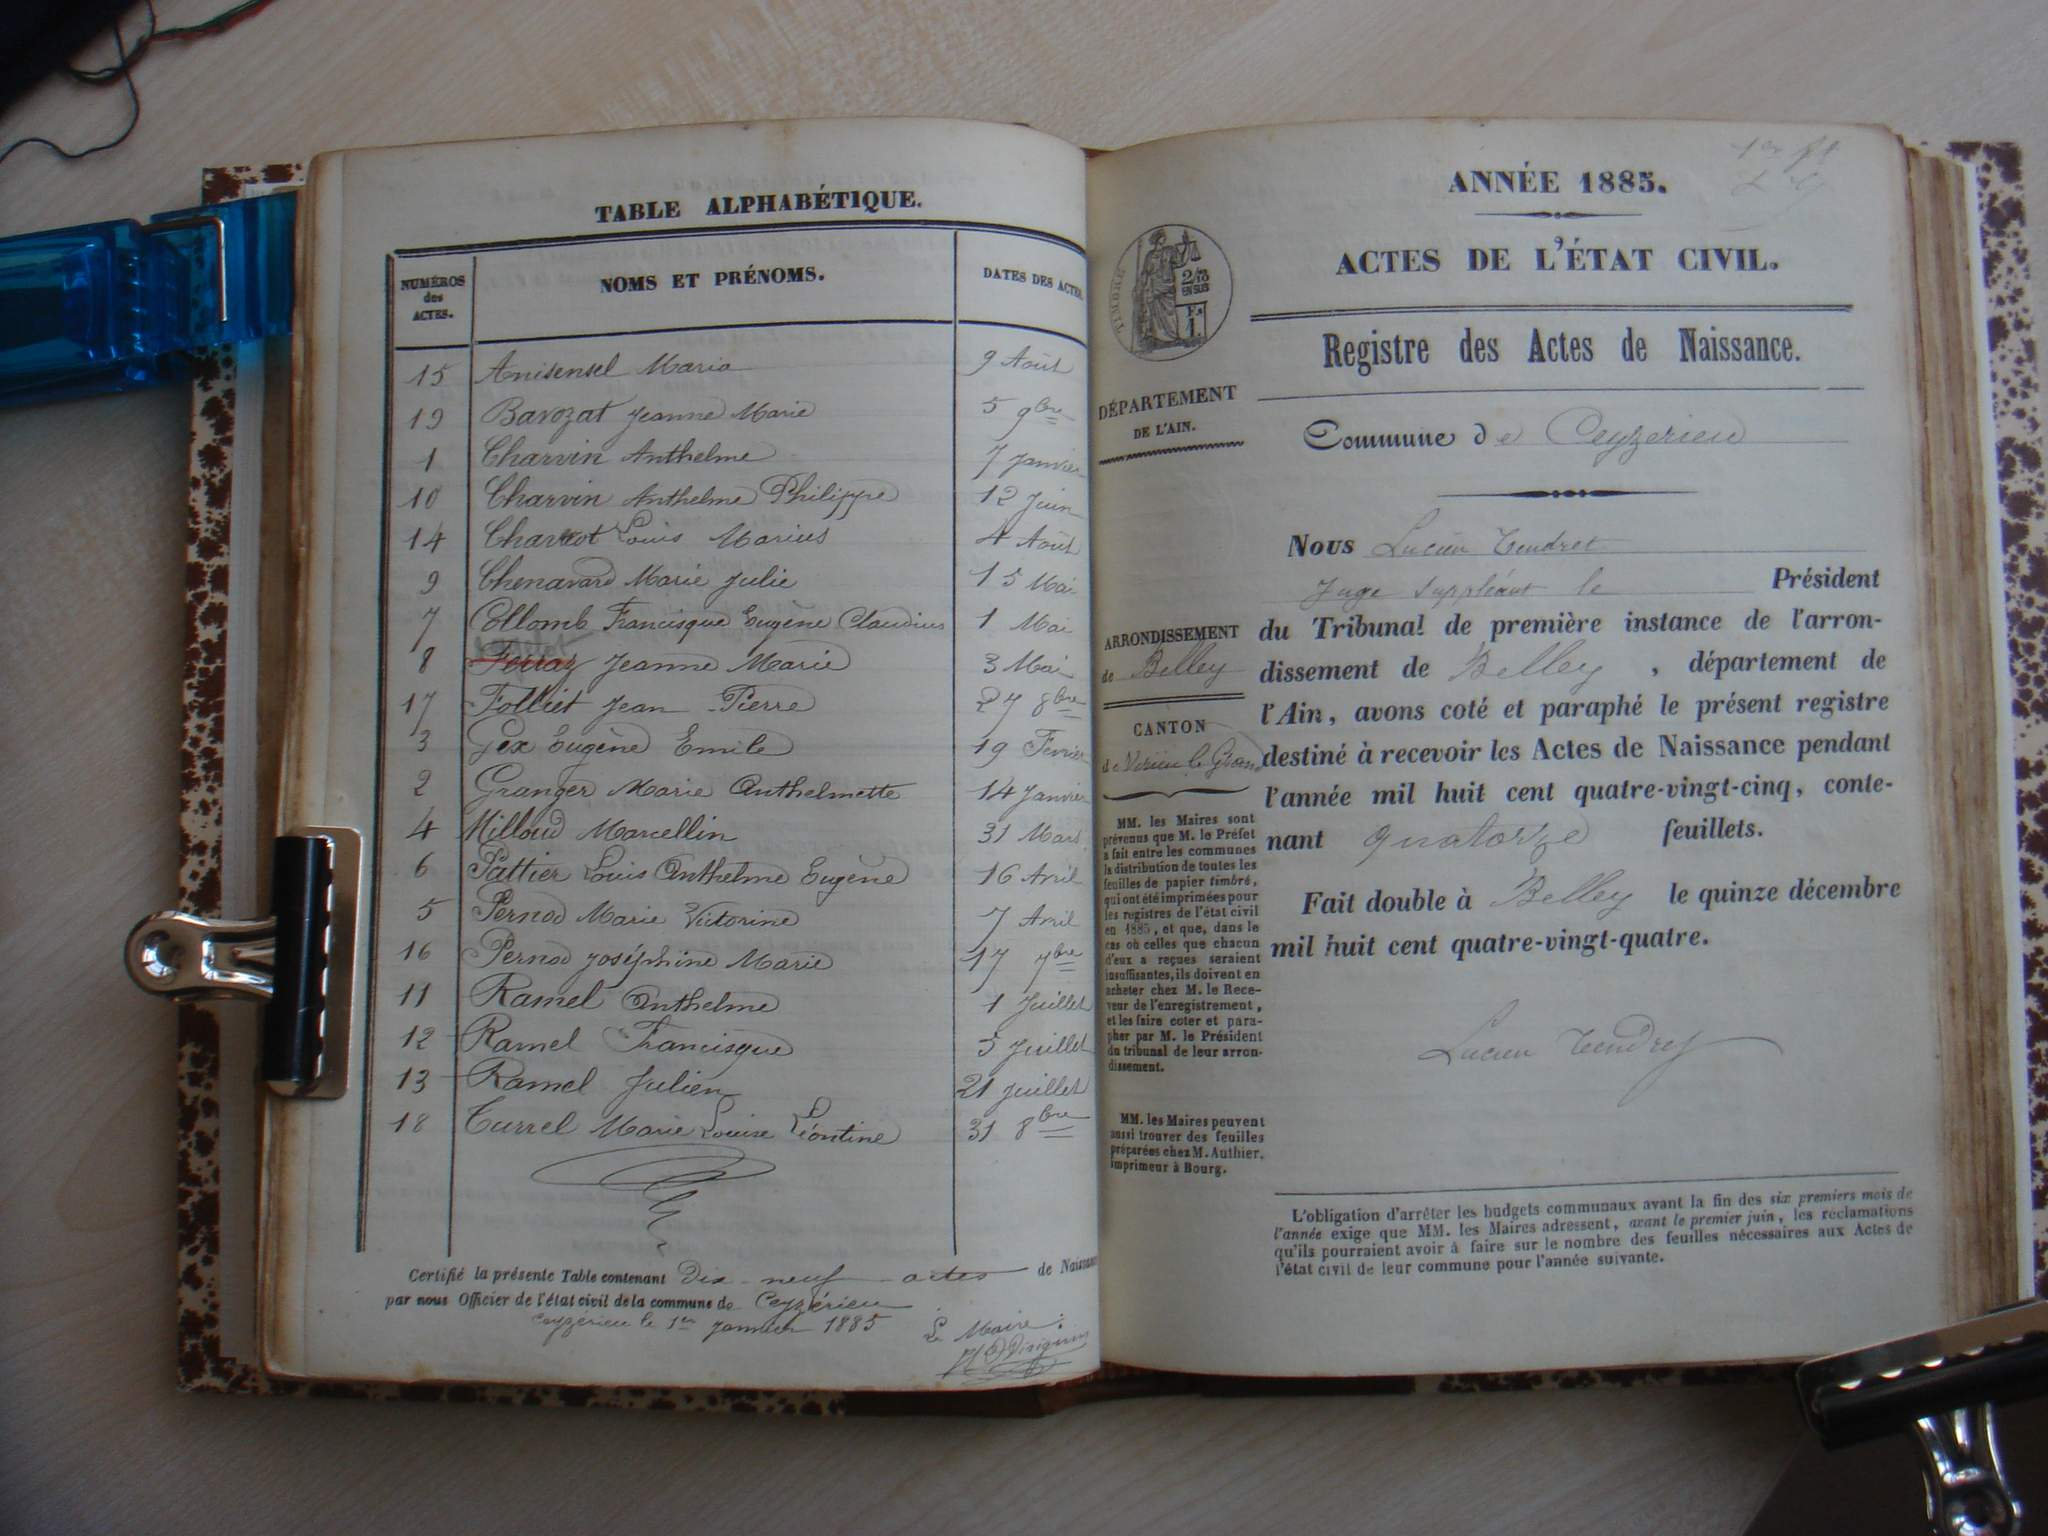 TABLE ALPHABÉTIQUE.
NUMÉROS des ACTES. NOMS ET PRÉNOMS. DATES DES ACTES
15 Anisensel Maria 9 Août
19 Bavozat Jeanne Marie 5 9bre
1 Charvin Anthelme 7 Janvier
10 Charvin Anthelme Philippe 12 Juin
14 Louis Marius 4 Août
9 Chenavard Marie Julie 15 Mai
7 Collomb Francisque Eugène Claudius 1 Mai
8 Ferraz Jeanne Marie 3 Mai
17 Folliet Jean Pierre 27 8bre
3 Gex Eugène Emile 19 Fevrier
2 Granger Marie Anthelmette 14 Janvier
4 Milloud Marcellin 31 Mars
6 Pattier Louis Anthelme Eugène 16 Avril
5 Pernod Marie Victorine 7 Avril
16 Pernod Joséphine Marie 17 7bre
11 Ramel Anthelme 1 Juillet
12 Ramel Francisque 5 Juillet
13 Ramel Julien 21 Juillet
18 Turrel Marie Louise Léontine 31 8bre
Certifié la présente Table contenant Dix-neuf actes de Naissance
par nous Officier de l'état civil de la commune de Ceyzérieu
Ceyzérieu le 1er Janvier 1885 Le Maire:
ANNÉE 1885.
ACTES DE L'ÉTAT CIVIL.
TIMBRE
2/10
EN SUS
F.
1.
Registre des Actes de Naissance.
DÉPARTEMENT
DE L'AIN.
Commune de Ceyzerieu
Nous Lucien Tendret
Juge suppléant le Président
du Tribunal de première instance de l'arron-
dissement de Belley, département de
l'Ain, avons coté et paraphé le présent registre
destiné à recevoir les Actes de Naissance pendant
l'année mil huit cent quatre-vingt-cinq, conte-
nant quatorze feuillets.
Fait double à Belley le quinze décembre
mil huit cent quatre-vingt-quatre.
Lucien Tendret
ARRONDISSEMENT
de Belley
CANTON
de Virieu le Grand
MM. les Maires sont
prévenus que M. le Préfet
a fait entre les communes
la distribution de toutes les
feuilles de papier timbré,
qui ont été imprimées pour
les registres de l'état civil
en 1885, et que, dans le
cas où celles que chacun
d'eux a reçues seraient
insuffisantes, ils doivent en
acheter chez M. le Rece-
veur de l'enregistrement,
et les faire coter et para-
pher par M. le Président
du tribunal de leur arron-
dissement.
MM. les Maires peuvent
aussi trouver des feuilles
préparées chez M. Authier,
imprimeur à Bourg.
L'obligation d'arrêter les budgets communaux avant la fin des six premiers mois de
l'année exige que MM. les Maires adressent, avant le premier juin, les réclamations
qu'ils pourraient avoir à faire sur le nombre des feuilles nécessaires aux Actes de
l'état civil de leur commune pour l'année suivante.